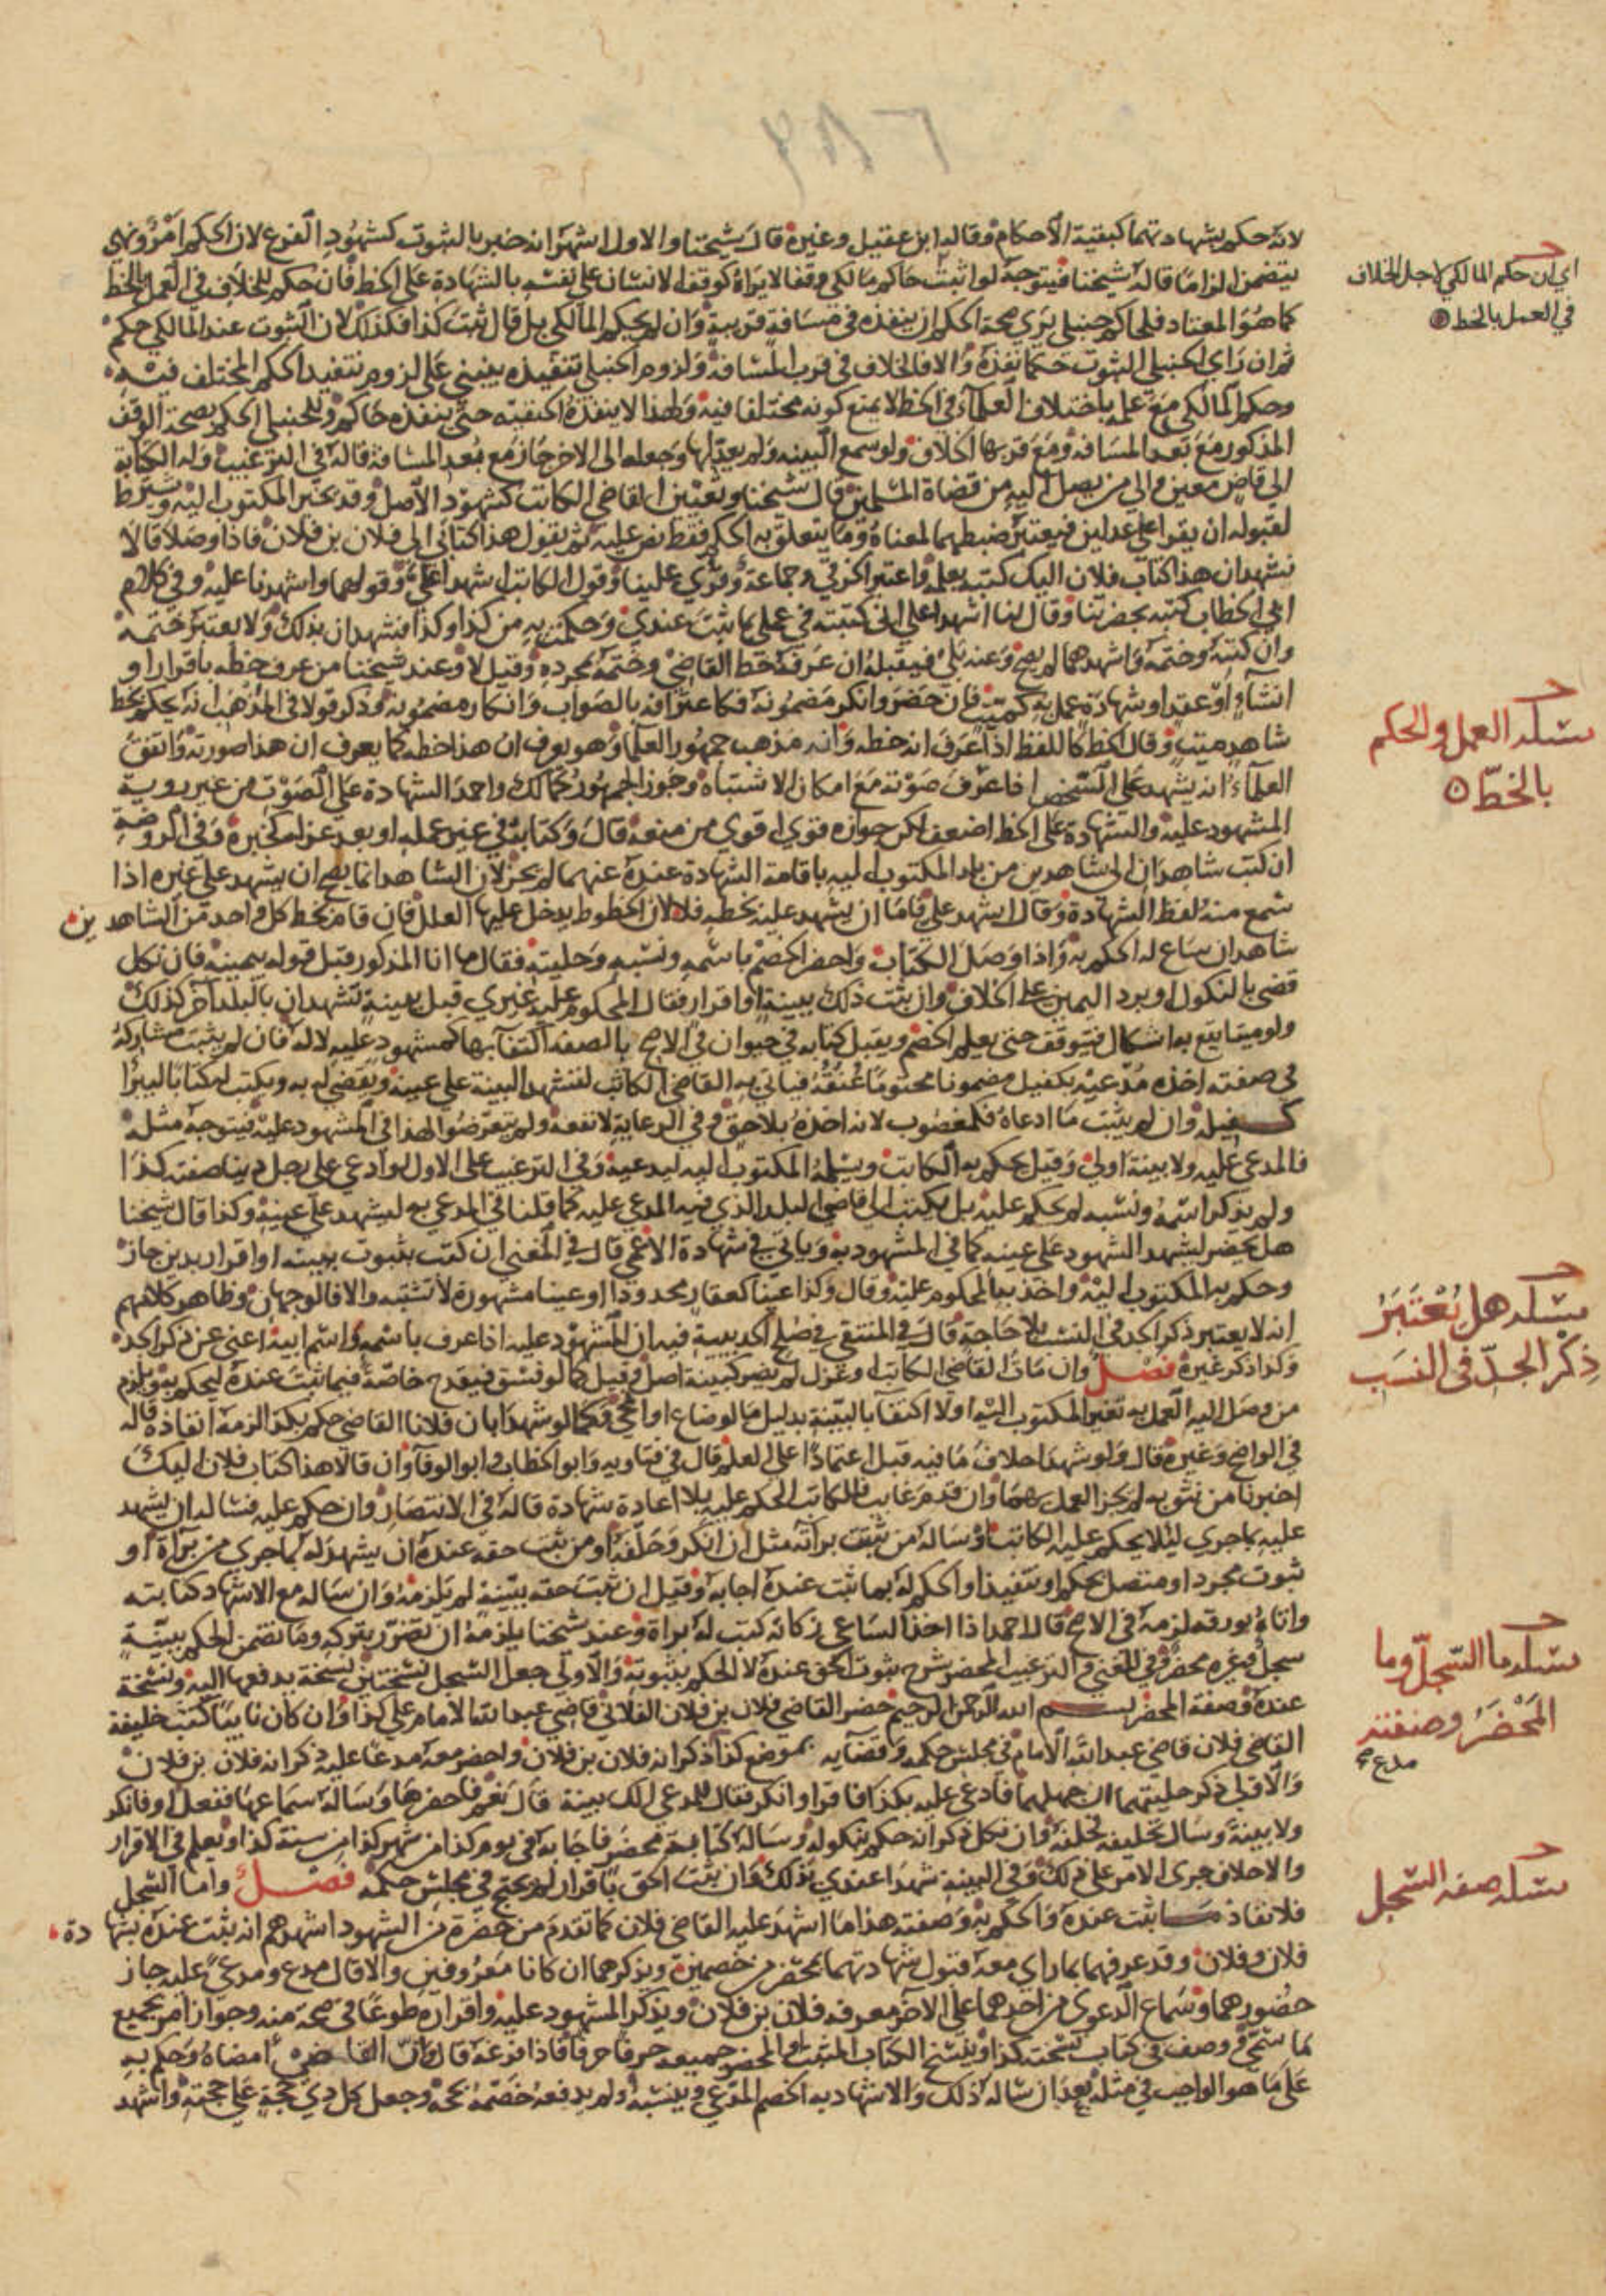 ٢٨٦
لانه حكم بشهادتهما كبقية الاحكام وقاله ابن عقيل وغيره قال شيخنا والاول اشهر انه خبر بالثبوت كشهود الفرع لان الحكم امر ونهي
يتضمن الزاما قاله شيخنا فيتوجه لو اثبت حاكم مالكي وقفا لا يراه كوقف الانسان على نفسه بالشهادة على الخط فان حكم للخلاف في العمل بالخط
كما هو المعتاد فلحاكم حنبلي يرى صحة الحكم ان ينفذه في مسافة قريبة وان لم يحكم المالكي بل قال ثبت كذا فكذلك لان الثبوت عند المالكي حكم
ثم ان راى الحنبلي الثبوت حكما نفذه والا فالخلاف في قرب المسافة ولزوم الحنبلي تنفيذه ينبني على لزوم تنفيذ الحكم المختلف فيه
وحكم المالكي مع علمه باختلاف العلماء في الخط لا يمنع كونه مختلفا فيه ولهذا لا ينفذه الحنفية حتى ينفذه حاكم وللحنبلي الحكم بصحة الوقف
المذكور مع بعد المسافة ومع قربها الخلاف ولو سمع البينه ولم يعدلها وجعله الى الاخر جاز مع بعد المسافة قاله في الترغيب وله الكتابة
الى قاض معين والى من يصل اليه من قضاة المسلمين قال شيخنا وتعيين القاضي الكاتب كشهود الاصل وقد يخير المكتوب اليه ويشترط
لقبوله ان يقرا على عدلين فيعتبر ضبطهما لمعناه وما يتعلق به الحكم فقط نص عليه ثم يقول هذا كتابي الى فلان بن فلان فاذا وصلا قالا
نشهد ان هذا كتاب فلان اليك كتبه بعمله واعتبر الخرقي وجماعة وقرئ علينا وقول الكاتب اشهدا علي وقولهما واشهدنا عليه وفي كلام
ابي الخطاب كتبه بحضرتنا وقال لنا اشهدا علي اني كتبته في عملي بما ثبت عندي وحكمت به من كذا وكذا فشهدان بذلك ولا يعتبر ختمه
وان كتبه وختمه واشهدهما لم يصح وعنه بلى فيقبله ان عرف خط القاضي وختمه بمجرده وقيل لا وعند شيخنا من عرف خطه باقرار او
انشاء او عقد او شهادة عمل به كميت فان حضر وانكر مضمونه فكاعترافه بالصواب وانكار مضمونه وذكر قولا في المذهب انه يحكم بخط
شاهد ميت وقال الخط كاللفظ اذا عرف انه خطه وانه مذهب جمهور العلماء وهو يعرف ان هذا خطه كما يعرف ان هذا صورته واتفق
العلماء انه يشهد على الشخص اذا عرف صوته مع امكان الاشتباه وجوز الجمهور كمالك واحمد الشهادة على الصوت من غير روية
المشهود عليه والشهادة على الخط اضعف لكن جوازه قوي اقوى من منعه قال وكتابه في غير عمله او بعد عزله كخبره وفي الروضة
ان كتب شاهدان الى شاهدين من بلد المكتوب اليه باقامة الشهادة عنده عنهما لم يجز لان الشاهد انما يصح ان يشهد على غيره اذا
سمع منه لفظ الشهادة وقال اشهد علي فاما ان يشهد عليه بخطه فلا لان الخطوط يدخل عليها العلل فان قام بخط كل واحد من الشاهدين
شاهدان ساغ له الحكم به واذا وصل الكتاب واحضر الخصم باسمه ونسبه وحليته فقال ما انا المذكور قبل قوله بيمينه فان نكل
قضى بالنكول او برد اليمين على الخلاف وان ثبت ذلك ببينة او اقرار فقال المحكوم عليه غيري قبل بينة تشهد ان بالبلد آخر كذلك
ولو ميتا يقع به اشكال فيتوقف حتى يعلم الخصم ويقبل كتابه في حيوان في الاصح بالصفه اكتفآ بها كمشهود عليه لا له فان لم يثبت مشاركة
في صفته اخذه مدعيه بكفيل مضمونا مختوما عنقه فياتي به القاضي الكاتب لتشهد البينة على عينه ويقضي له به ويكتب له كتابا ليبرا
كفيله وان لم يثبت ما ادعاه فكمغصوب لانه اخذه بلا حق وفي الرعاية لا نفعه ولم يتعرضوا لهذا في المشهود عليه فيتوجه مثله
فالمدعي عليه ولا بينة اولى وقيل يحكم به الكاتب ويسلمه المكتوب اليه لمدعيه وفي الترغيب على الاول لو ادعي على رجل دينا صفته كذا
ولم يذكر اسمه ونسبه لم يحكم عليه بل يكتب الى قاضي البلد الذي فيه المدعي عليه كما قلنا في المدعي به ليشهد على عينه وكذا قال شيخنا
هل يحضر ليشهد الشهود على عينه كما في المشهود به وياتي في شهادة الاعمى قال في المغني ان كتب بثبوت بينته او اقرار بدين جاز
وحكم به المكتوب اليه واخذ به المحكوم عليه وقال وكذا عينا كعقار محدود او عينا مشهورة لا تشتبه والا فالوجهان وظاهر كلامهم
انه لا يعتبر ذكر الجد في النسب بلا حاجة قال في المنتقى في صلح الحديبية فيه ان المشهود عليه اذا عرف باسمه واسم ابيه اغنى عن ذكر الجد
وكذا ذكر غيره فصل وان مات القاضي الكاتب او عزل لم يضر كبينة اصل وقيل كما لو فسق فيقدح خاصة فيما ثبت عنده ليحكم به ويلزم
من وصل اليه العمل به تغير المكتوب اليه اولا اكتفآ بالبينة بدليل ما لو ضاع او امحي وكما لو شهدا بان فلانا القاضي حكم بكذا لزمه انفاذه قاله
في الواضح وغيره قال ولو شهدا بخلاف ما فيه قبل اعتمادا على العلم قال في فتاويه وابو الخطاب وابو الوفا وان قالا هذا كتاب فلان اليك
اخبرنا من نثق به لم يجز العمل بهما وان قدم غايب فللكاتب الحكم عليه بلا اعادة شهادة قاله في الانتصار وان حكم عليه فسال ان يشهد
عليه بما جرى ليلا يحكم عليه الكاتب او ساله من ثبتت برآته مثل ان انكر وحلفه او من ثبت حقه عنده ان يشهد له بما جرى من برآة او
ثبوت مجرد او متصل بحكم او تنفيذ او الحكم له بما ثبت عنده اجابه وقيل ان ثبت حقه ببينة لم يلزمه وان ساله مع الاشهاد كتابته
واتاه بورقه لزمه في الاصح قال احمد اذا اخذ الساعي زكاته كتب له براة وعند شيخنا يلزمه ان تضرر بتركه وما تضمن الحكم ببينة
سجل وغيره محضر وفي المغني والترغيب المحضر شرح ثبوت الحق عنده لا الحكم بثبوته والاولى جعل السجل نسختين نسخة يدفعها اليه ونسخة
عنده وصفة المحضر بسم الله الرحمن الرحيم حضر القاضي فلان بن فلان الفلاني قاضي عبد الله الامام على كذا وان كان نايبا كتب خليفة
القاضي فلان قاضي عبد الله الامام في مجلس حكمه وقضآيه بموضع كذا ذكر انه فلان بن فلان واحضر معه مدعا عليه ذكر انه فلان بن فلان
والاولى ذكر حليتهما ان جهلهما فادعى عليه بكذا فاقر او انكر فقال للمدعي الك بينة قال نعم فاحضرها وساله سماعها ففعل او فانكر
ولا بينة وسال تحليفه فحلفه وان نكل ذكر انه حكم بنكوله وساله كتابة محضر فاجابه في يوم كذا من شهر كذا من سنة كذا ويعلم في الاقرار
والاحلاف جرى الامر على ذلك وفي البينه شهدا عندي بذلك وان ثبت الحق باقرار لم يحتج في مجلس حكمه فصل واما السجل
فلانفاذ ما ثبت عنده والحكم به وصفته هذا ما اشهد عليه القاضي فلان كما تقدم من حضره من الشهود اشهدهم انه ثبت عنده بشهادة
فلان وفلان وقد عرفهما بما راي معه قبول شهادتهما بمحضر من خصمين ويذكرهما ان كانا معروفين والا قال مدع ومدعى عليه جاز
حضورهما وسماع الدعوى من احدهما على الآخر معرفه فلان بن فلان ويذكر المشهود عليه واقراره طوعا في صحة منه وجواز امر بجميع
ما سمي ووصف في كتاب نسخته كذا وينسخ الكتاب المثبت او المحضر جميعه حرفا حرفا فاذا فرغه قال وان القاضي امضاه وحكم به
على ما هو الواجب في مثله بعد ان ساله ذلك والاشهاد به الخصم المدعي وينسبه ولم يدفعه خصمه بحجة وجعل كل ذي حجة على حجته واشهد
اي ان حكم المالكي لاجل الخلاف
في العمل بالخط
مسئلة العمل والحكم
بالخط
مسئلة هل يعتبر
ذكر الجد في النسب
مسئلة ما السجل وما
المحضر وصفته
مدع صح
مسئلة صفة السجل